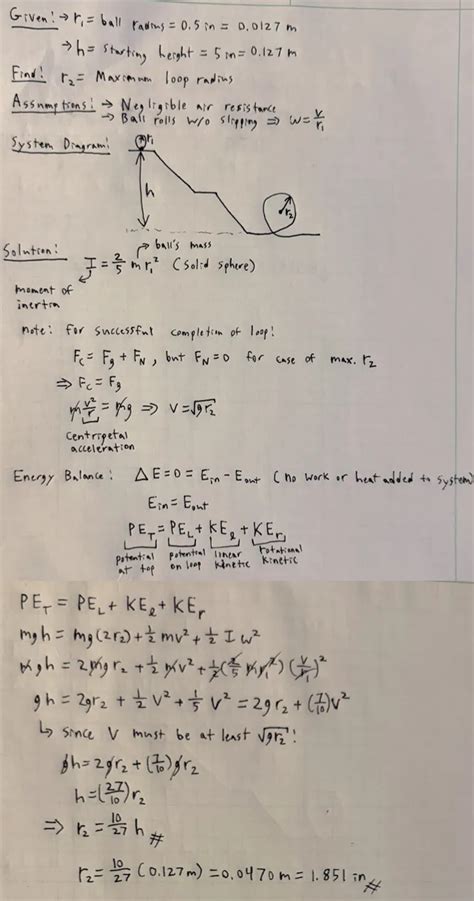 Given: → r₁ = ball radius = 0.5 in = 0.0127 m
→ h = starting height = 5 in = 0.127 m
Find: r₂ = Maximum loop radius
Assumptions: → Negligible air resistance
→ Ball rolls w/o slipping ⇒ ω = v/r₁
System Diagram:
r₁
h
r₂
Solution:
ball's mass
I = 2/5 m r₁² (solid sphere)
moment of inertia
note: for successful completion of loop:
F_c = F_g + F_N, but F_N = 0 for case of max. r₂
⇒ F_c = F_g
m v²/r = mg ⇒ v = √(gr₂)
centripetal acceleration
Energy Balance: ΔE = 0 = E_in - E_out (no work or heat added to system)
E_in = E_out
PE_T = PE_L + KE_ℓ + KE_r
potential at top potential on loop linear kinetic rotational kinetic
PE_T = PE_L + KE_ℓ + KE_r
mgh = mg(2r₂) + ½ mv² + ½ I ω²
mgh = 2mgr₂ + ½ mv² + ½(2/5 m r₁²)(v/r₁)²
gh = 2gr₂ + ½ v² + 1/5 v² = 2gr₂ + (7/10)v²
↳ since v must be at least √(gr₂):
gh = 2gr₂ + (7/10)gr₂
h = (27/10) r₂
⇒ r₂ = 10/27 h #
r₂ = 10/27 (0.127 m) = 0.0470 m = 1.851 in #